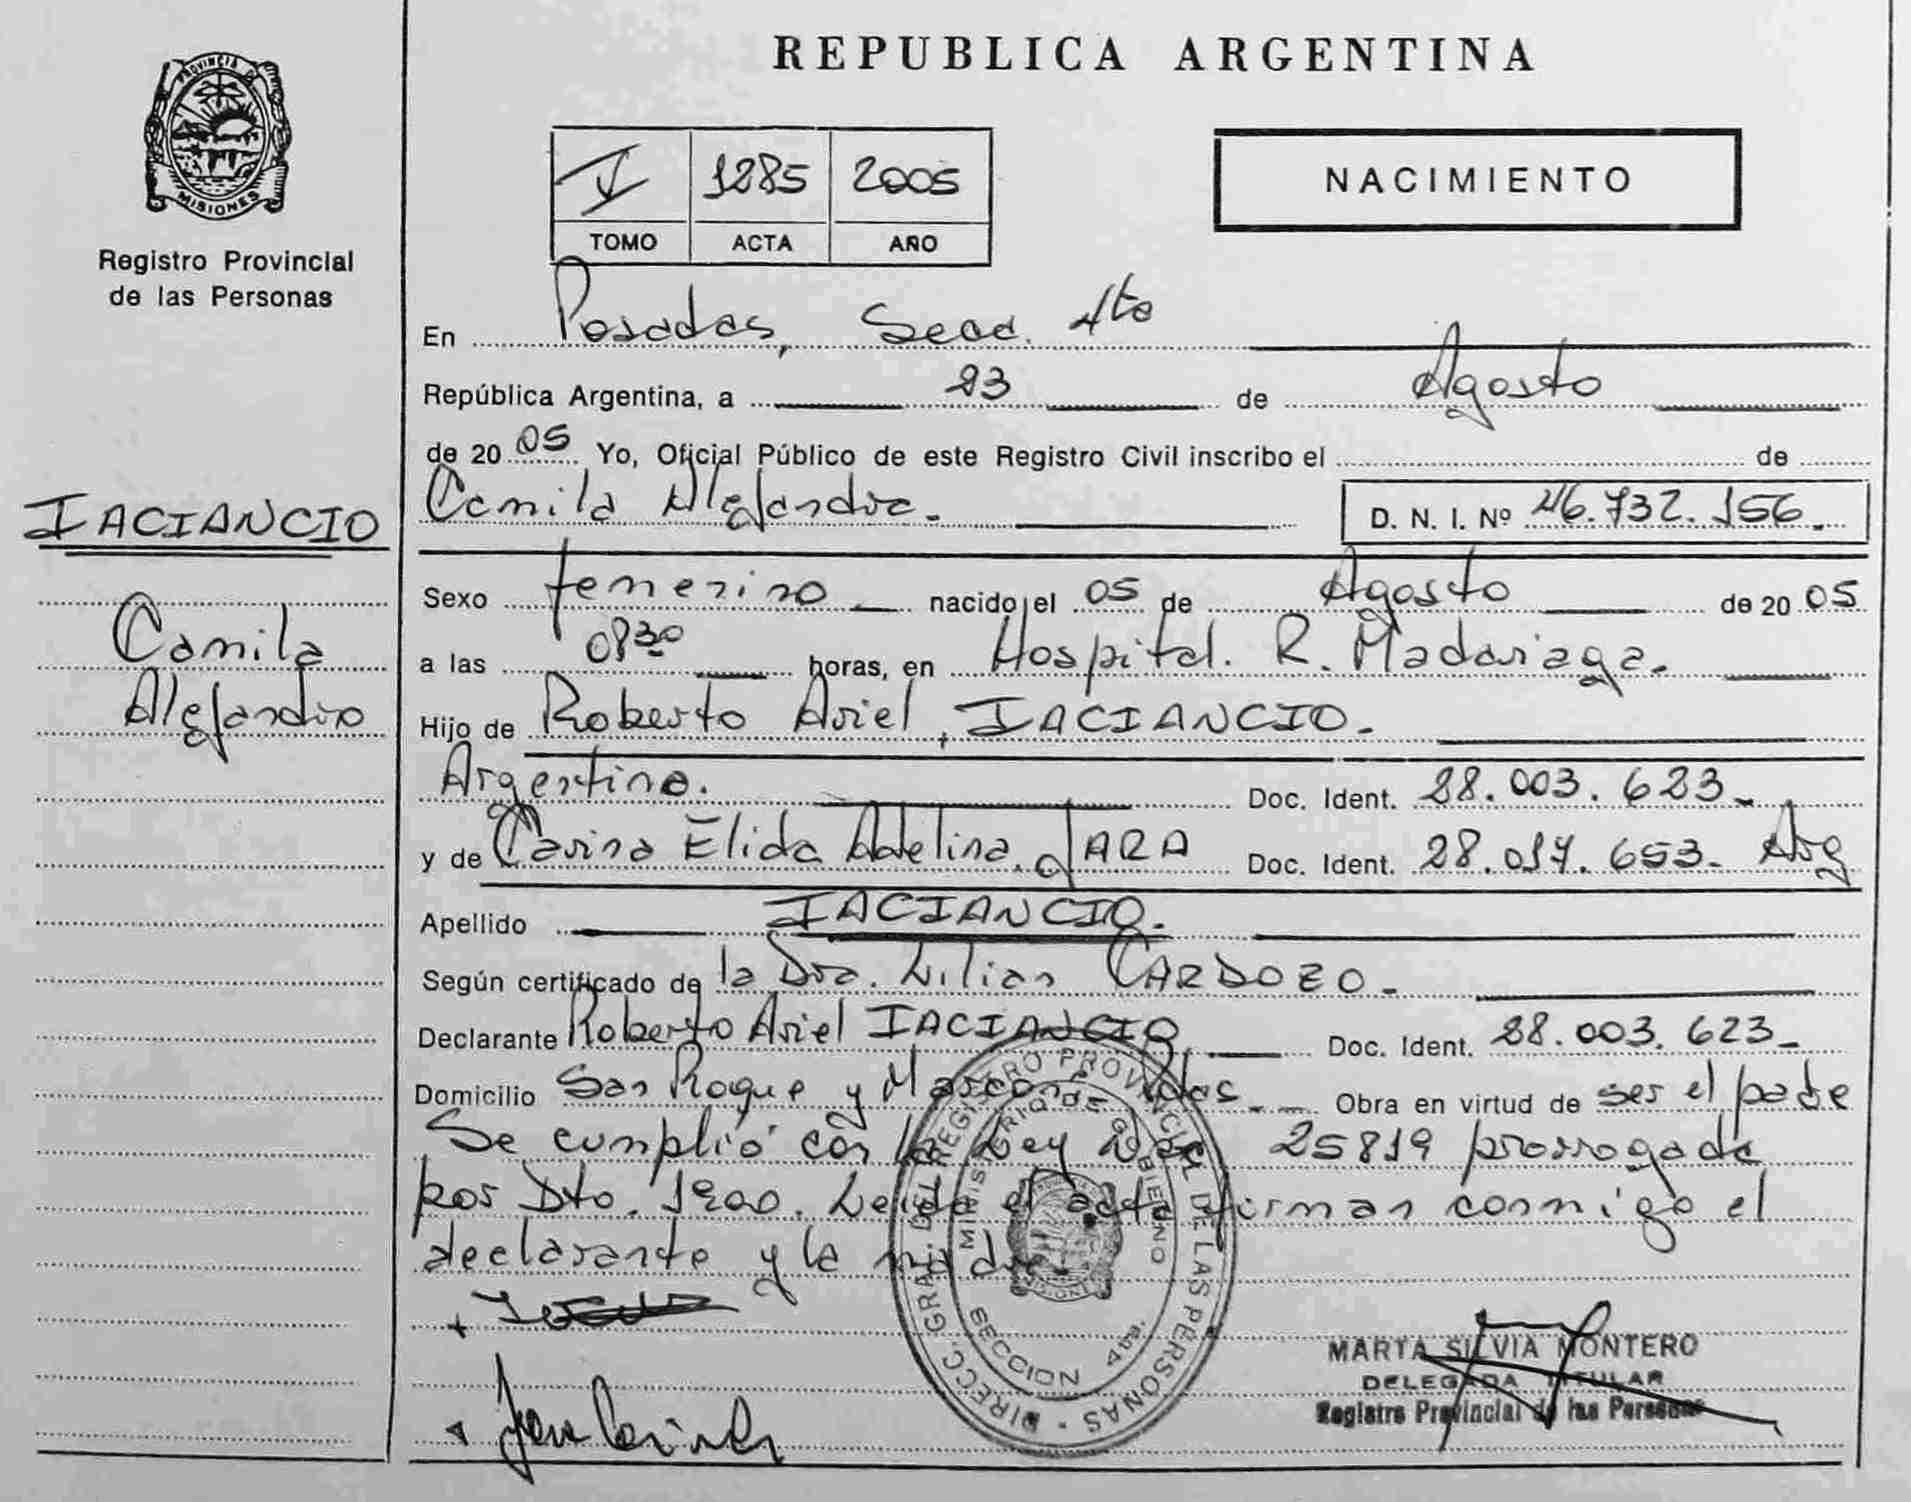 REPUBLICA ARGENTINA
PROVINCIA DE
MISIONES
Registro Provincial
de las Personas
I 1285 2005
TOMO ACTA AÑO
NACIMIENTO
En Posadas, Secc. 4ta
República Argentina, a 23 de Agosto
de 2005 Yo, Oficial Público de este Registro Civil inscribo el de
Camila Alejandra. D. N. I. Nº 46.732.156.
IACIANCIO
Camila
Alejandra
Sexo femenino nacido el 05 de Agosto de 2005
a las 0830 horas, en Hospital. R. Madariaga.
Hijo de Roberto Ariel, IACIANCIO.
Argentino. Doc. Ident. 28.003.623-
y de Carina Elida Adelina, JARA Doc. Ident. 28.017.653- Arg
Apellido IACIANCIO.
Según certificado de la Dra. Lilian CARDOZO.-
Declarante Roberto Ariel IACIANCIO Doc. Ident. 28.003.623-
Domicilio San Roque y Obra en virtud de ser el padre
Se cumplió con la Ley 25819 prorrogada
por Dto. 1900. Leída el acta firman conmigo el
declarante y la madre.
DIRECC. GRAL. DEL REGISTRO PROVINCIAL DE LAS PERSONAS
MINISTERIO DE GOBIERNO
SECCION 4ta.
MARTA SILVIA MONTERO
DELEGADA TITULAR
Registro Provincial de las Personas